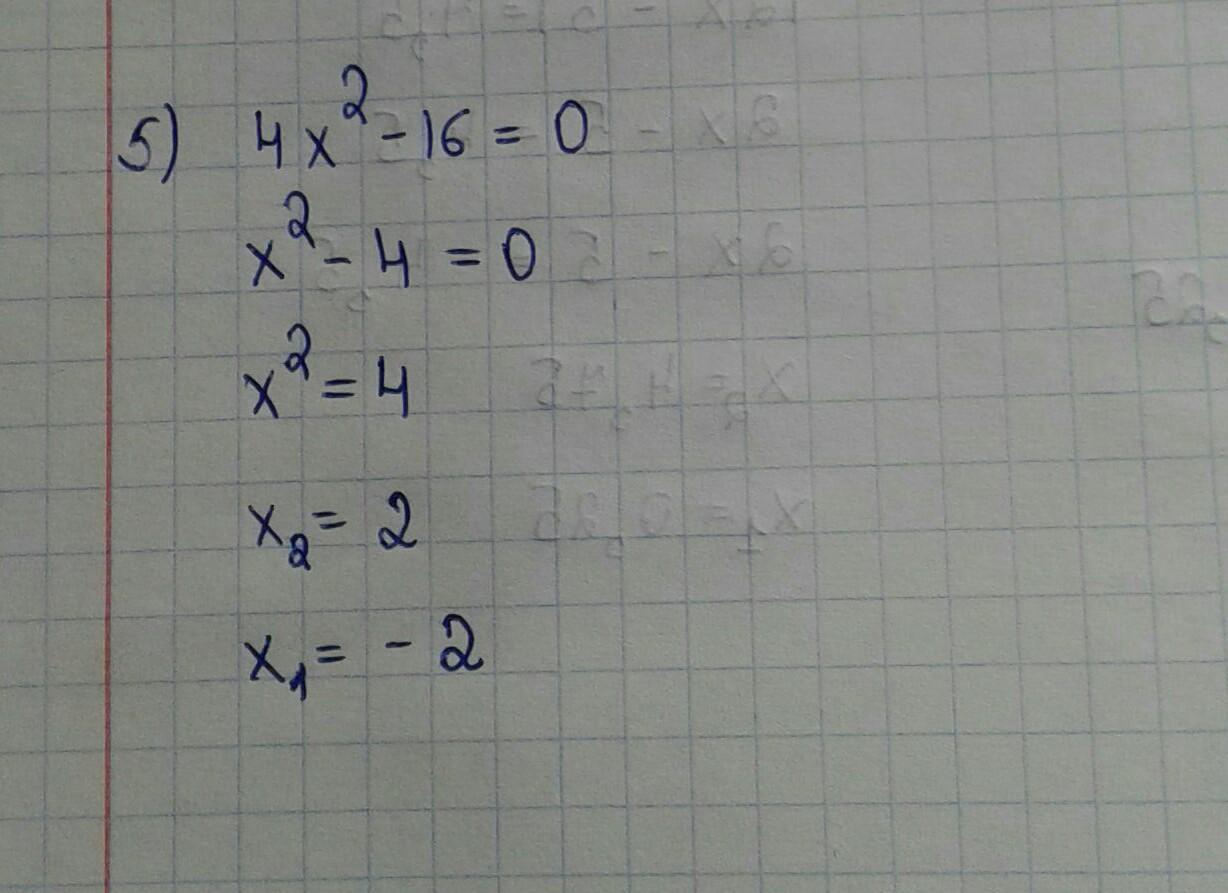 5) 4x² - 16 = 0
x² - 4 = 0
x² = 4
x₂ = 2
x₁ = - 2